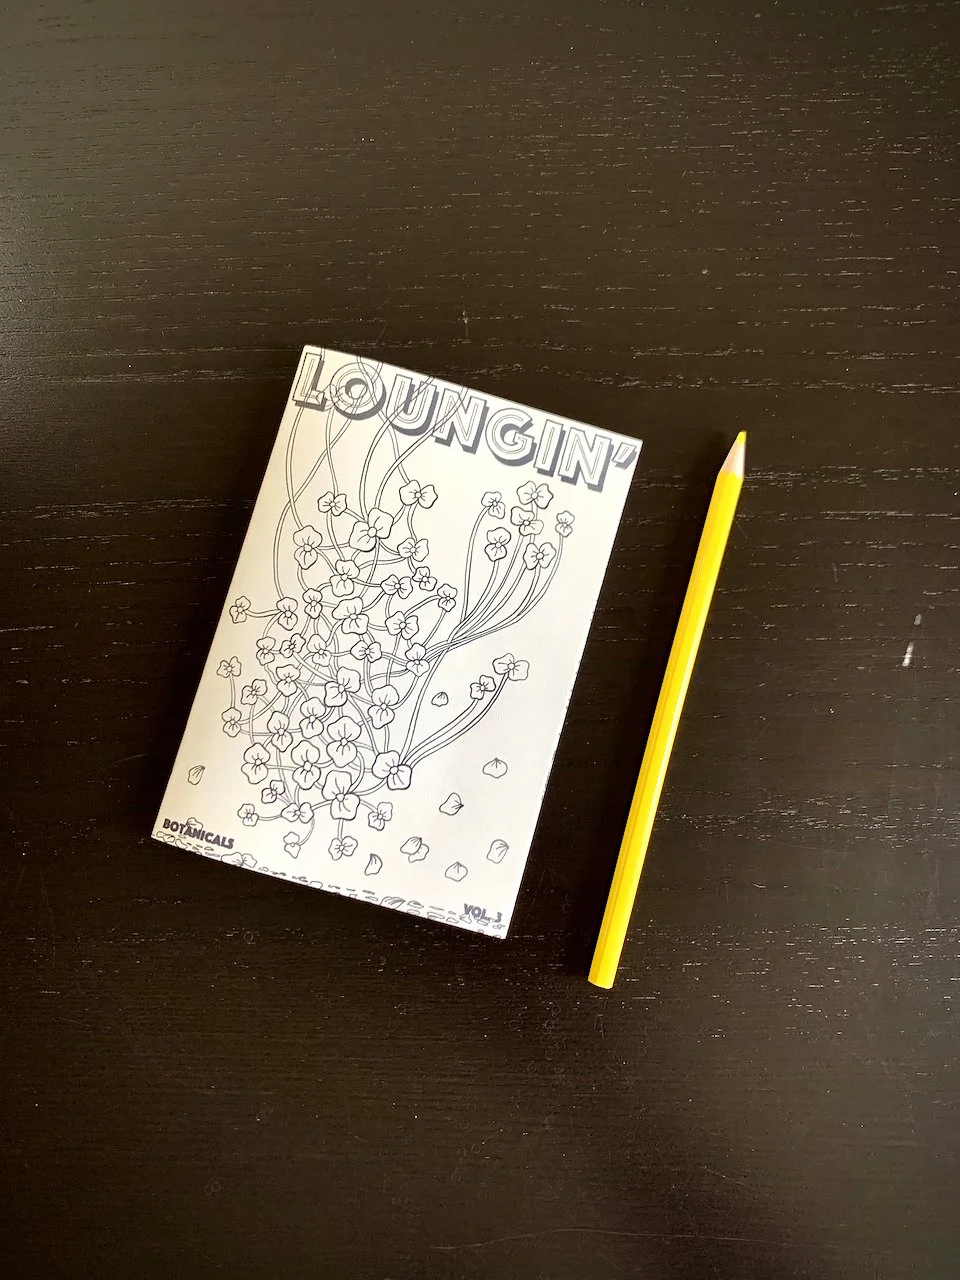 LOUNGIN'
BOTANICALS
VOL. 3